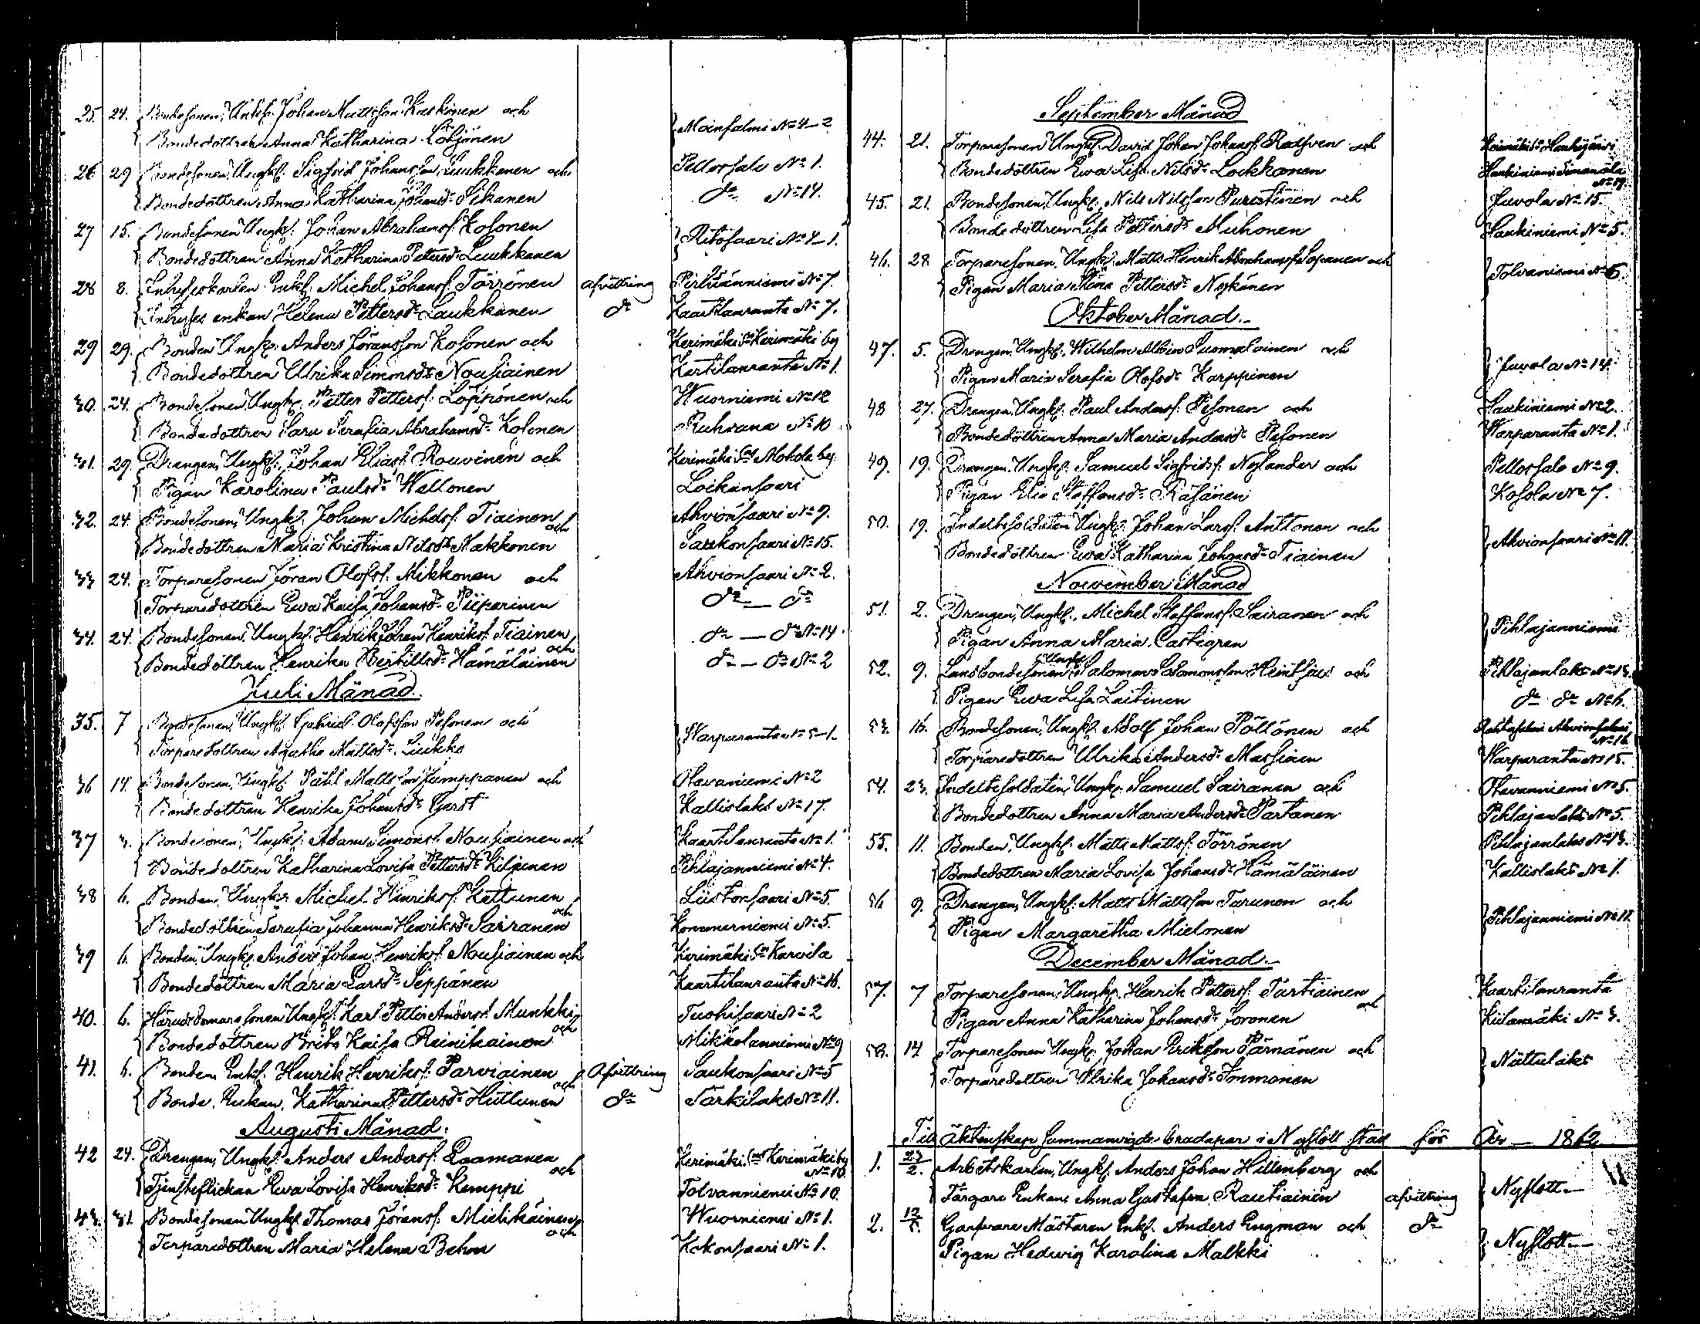 25. 24. Bondesonen, Enkl. Johan Mattsson Kaskinen och
Bondedottren Anna Katharina Löljönen } Moinsalmi No 4-2
26 29 Bondesonen, Ungk. Sigfrid Johansson Luukkanen och Pellossalo No 1.
Bondedottren Anna Katharina Johansdr Sikanen do No 14.
27 15. Bondesonen Ungk. Johan Abrahamsf. Kosonen
Bondedottren Anna Katharina Pettersdr Luukkanen } Ritosaari No 4-1.
28 8. Inhyseskarlen Enkl. Michel Johansf. Törrönen afvittring Pirhiänniemi No 7.
Inhyses enkan Helena Pettersdr Laukkanen do Kaartilanranta No 7.
29 29. Bonden Ungk. Anders Jöransson Kosonen och Kerimäki Sn Kerimäki by
Bondedottren Ulrika Simonsdr Nousiainen Kartilanranta No 1.
30. 24. Bondesonen Ungk. Petter Pettersf. Löppönen och Wuorniemi No 12
Bondedottren Sara Serafia Abrahamsdr Kolonen Ruhvana No 10
31. 29. Drengen, Ungk. Johan Eliasf. Rouvinen och Kerimäki Sn Mokola by
Pigan Karolina Paulsdr Wallonen Loikansaari
32. 24. Bondesonen, Ungk. Johan Michelsf. Tiainen och Ahvionsaari No 9.
Bondedottren Maria Kristina Nilsdr Makkonen Saukonsaari No 15.
33 24. Torparesonen Jöran Olofsf. Mikkonen och Ahvionsaari No 2.
Torparedottren Ewa Kaisa Johansdr Piiparinen do — do
34. 24. Bondesonen, Ungk. Henrik Johan Henriksf. Tiainen och do — do No 14.
Bondedottren Henrika Bertillsdr Hämäläinen do — do No 2
Juli Månad.
35. 7 Bondesonen, Ungk. Gabriel Olofsson Pesonen och
Torparedottren Agatha Mattsdr Liukko } Warparanta No 5-1.
36 14. Bondesonen, Ungk. Påhl Mattsson Jumppanen och Otavaniemi No 2
Bondedottren Henrika Johansdr Gerst Kallislaks No 17.
37 Bondesonen, Ungk. Adam Simonsf. Nousiainen och Kaartilanranta No 1.
Bondedottren Katharina Lovisa Pettersdr Kilpinen Pihlajanniemi No 4.
38 6. Bonden, Ungk. Michel Henriksf. Kettunen och Liistonsaari No 5.
Bondedottren Serafia Johanna Henriksdr Sairanen Kommerniemi No 5.
39 6. Bonden, Ungk. Anders Johan Henriksf. Nousiainen och Kerimäki Sn Karvila
Bondedottren Maria Larsdr Seppänen Kaartilanranta No 16.
40. 6. Häradsdomare sonen Ungk. Karl Petter Andersf. Munkki och Tuohisaari No 2
Bondedottren Brita Kaisa Reinikainen Mikkolanniemi No 9
41. 6. Bonden Enkl. Henrik Henriksf. Parviainen och Afvittring Saukonsaari No 5
Bonde Enkan, Katharina Pettersdr Huttunen do Särkilaks No 11.
Augusti Månad.
42 24. Drengen, Ungk. Anders Andersf. Raamanen och Kerimäki Sn Kerimäki by No 10
Tjensteflickan Ewa Lovisa Henriksdr Kemppi Tolvanniemi No 10.
43. 31. Bondesonen Ungk. Thomas Jöransf. Mielikäinen och Wuorniemi No 1.
Torparedottren Maria Helena Behm Kokonsaari No 1.
September Månad
44. 21. Torparesonen Ungk. David Johan Johansf. Rothven och Kerimäki Sn
Bondedottren Ewa Lisa Nilsdr Lockkanen Haukiniemi Simanala No 19.
45. 21. Bondesonen, Ungk. Nils Nilsson Purastinen och Juvola No 15.
Bondedottren Lisa Pettersdr Muhonen Haukiniemi No 5.
46. 28 Torparesonen, Ungk. Matts Henrik Abrahamsf. Sopanen och
Pigan Maria Stina Pettersdr Noskinen } Tolvaniemi No 6.
Oktober Månad.
47. 5. Drengen, Ungk. Wilhelm Albin Suomalainen och
Pigan Maria Serafia Olofsdr Karppinen } Juvola No 14.
48 27. Drengen, Ungk. Paul Andersf. Pesonen och Haukiniemi No 2.
Bondedottren Anna Maria Andersdr Pesonen Warparanta No 1.
49. 19. Drengen, Ungk. Samuel Sigfridsf. Nylander och Pellossalo No 9.
Pigan Elin Staffansdr Räsänen Kosola No 7.
50. 19. Indeltsoldaten Ungk. Johan Larsf. Anttonen och
Bondedottren Ewa Katharina Johansdr Tiainen } Ahvionsaari No 11.
November Månad
51. 2. Drengen, Ungk. Michel Staffansf. Sairanen och
Pigan Anna Maria Castegren } Pihlajanniemi
52. 9. Landbondesonen Ungk. Salomon Salomonsson Heinsius och Pihlajanlaks No 13.
Pigan Ewa Lisa Laitinen do do No 6.
53. 16. Bondesonen, Ungk. Adolf Johan Pöllönen och No 16
Torparedottren Ulrika Andersdr Massinen Warparanta No 15.
54. 23. Indeltsoldaten, Ungk. Samuel Sairanen och Otavanniemi No 5.
Bondedottren Anna Maria Andersdr Partanen Pihlajanlaks No 5.
55. 11. Bonden, Ungk. Matts Mattsf. Törrönen Pihlajanlaks No 13.
Bondedottren Maria Lovisa Johansdr Hämäläinen Kallislaks No 1.
56 9. Drengen, Ungk. Matts Mattsson Turunen och
Pigan Margaretha Mielonen } Pihlajanniemi No 11.
December Månad.
57. 7 Torparesonen, Ungk. Henrik Pettersf. Partiainen och Kaartilanranta
Pigan Anna Katharina Johansdr Soronen Kulamäki No 3.
58. 14 Torparesonen Ungk. Johan Eriksson Pärnänen och
Torparedottren Ulrika Johansdr Immonen } Nättälaks
Till äktenskap sammanvigde brudepar i Nyslott stad för År — 1862
1. 23/2. Arbetskarlen, Ungk. Anders Johan Hellenberg och
Färgare Enkan Anna Gustafva Rautiainen afvittring } Nyslott
2. 12/5. Garfvare Mästaren Enkl. Anders Engman och do
Pigan Hedwig Karolina Malkki } Nyslott